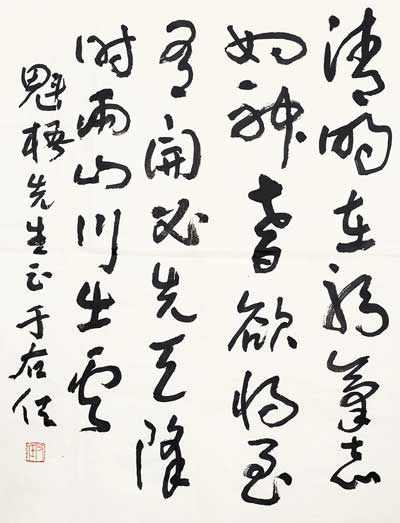 清明在躬氣志
如神耆欲將至
有開必先天降
時雨山川出雲
魁梧先生正于右任